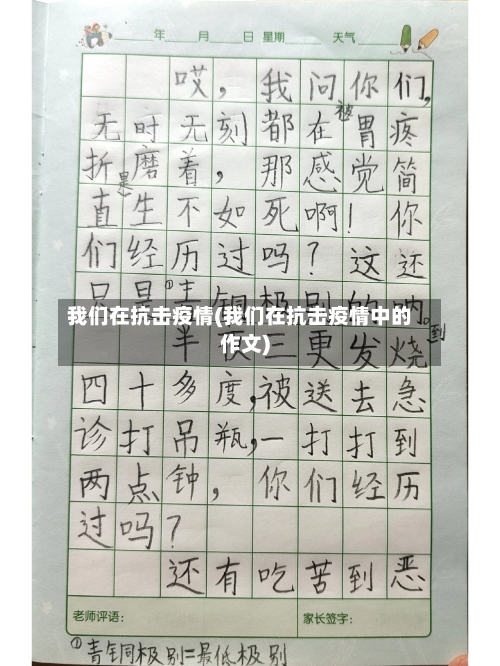 年 月 日 星期 天气
哎，我问你们，
无时无刻都在被胃疼
折磨着，那感觉简
直是生不如死啊！你
们经历过吗？这还
只是①青铜极别的呐。
我们在抗击疫情(我们在抗击疫情中的
作文)
半夜三更发烧到
四十多度，被送去急
诊打吊瓶，一打打到
两点钟，你们经历
过吗？
还有吃苦到恶
老师评语：
家长签字：
①青铜极别=最低极别